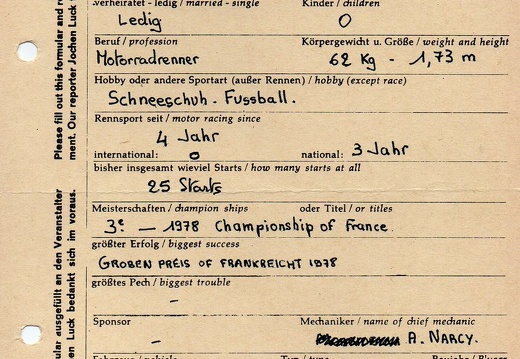 verheiratet - ledig / married - single Kinder / children
Ledig O
Beruf / profession Körpergewicht u. Größe / weight and height
Motorradrenner 62 Kg - 1,73 m
Hobby oder andere Sportart (außer Rennen) / hobby (except race)
Schneeschuh - Fussball.
Rennsport seit / motor racing since
4 Jahr
international: o national: 3 Jahr
bisher insgesamt wieviel Starts / how many starts at all
25 Starts
Meisterschaften / champion ships oder Titel / or titles
3e — 1978 Championship of France.
größter Erfolg / biggest success
GROBEN PREIS OF FRANKREICHT 1978
größtes Pech / biggest trouble
-
Sponsor Mechaniker / name of chief mechanic
- A. NARCY.
Please fill out this formular and
ment. Our reporter Jochen Luck
ular ausgefüllt an den Veranstalter
en Luck bedankt sich im voraus.